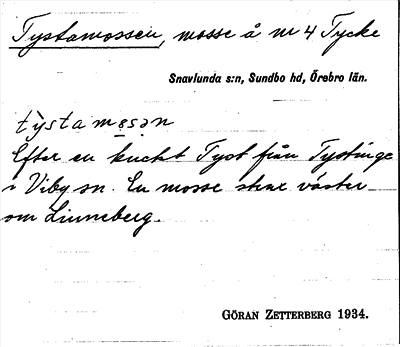 Tystamossen, mosse å m 4 Tycke
Snavlunda s:n, Sundbo hd, Örebro län.
tỳstamɷsən
Efter en knekt Tyst från Tystinge
i Viby sn. En mosse strax väster
om Linneberg.
GÖRAN ZETTERBERG 1934.